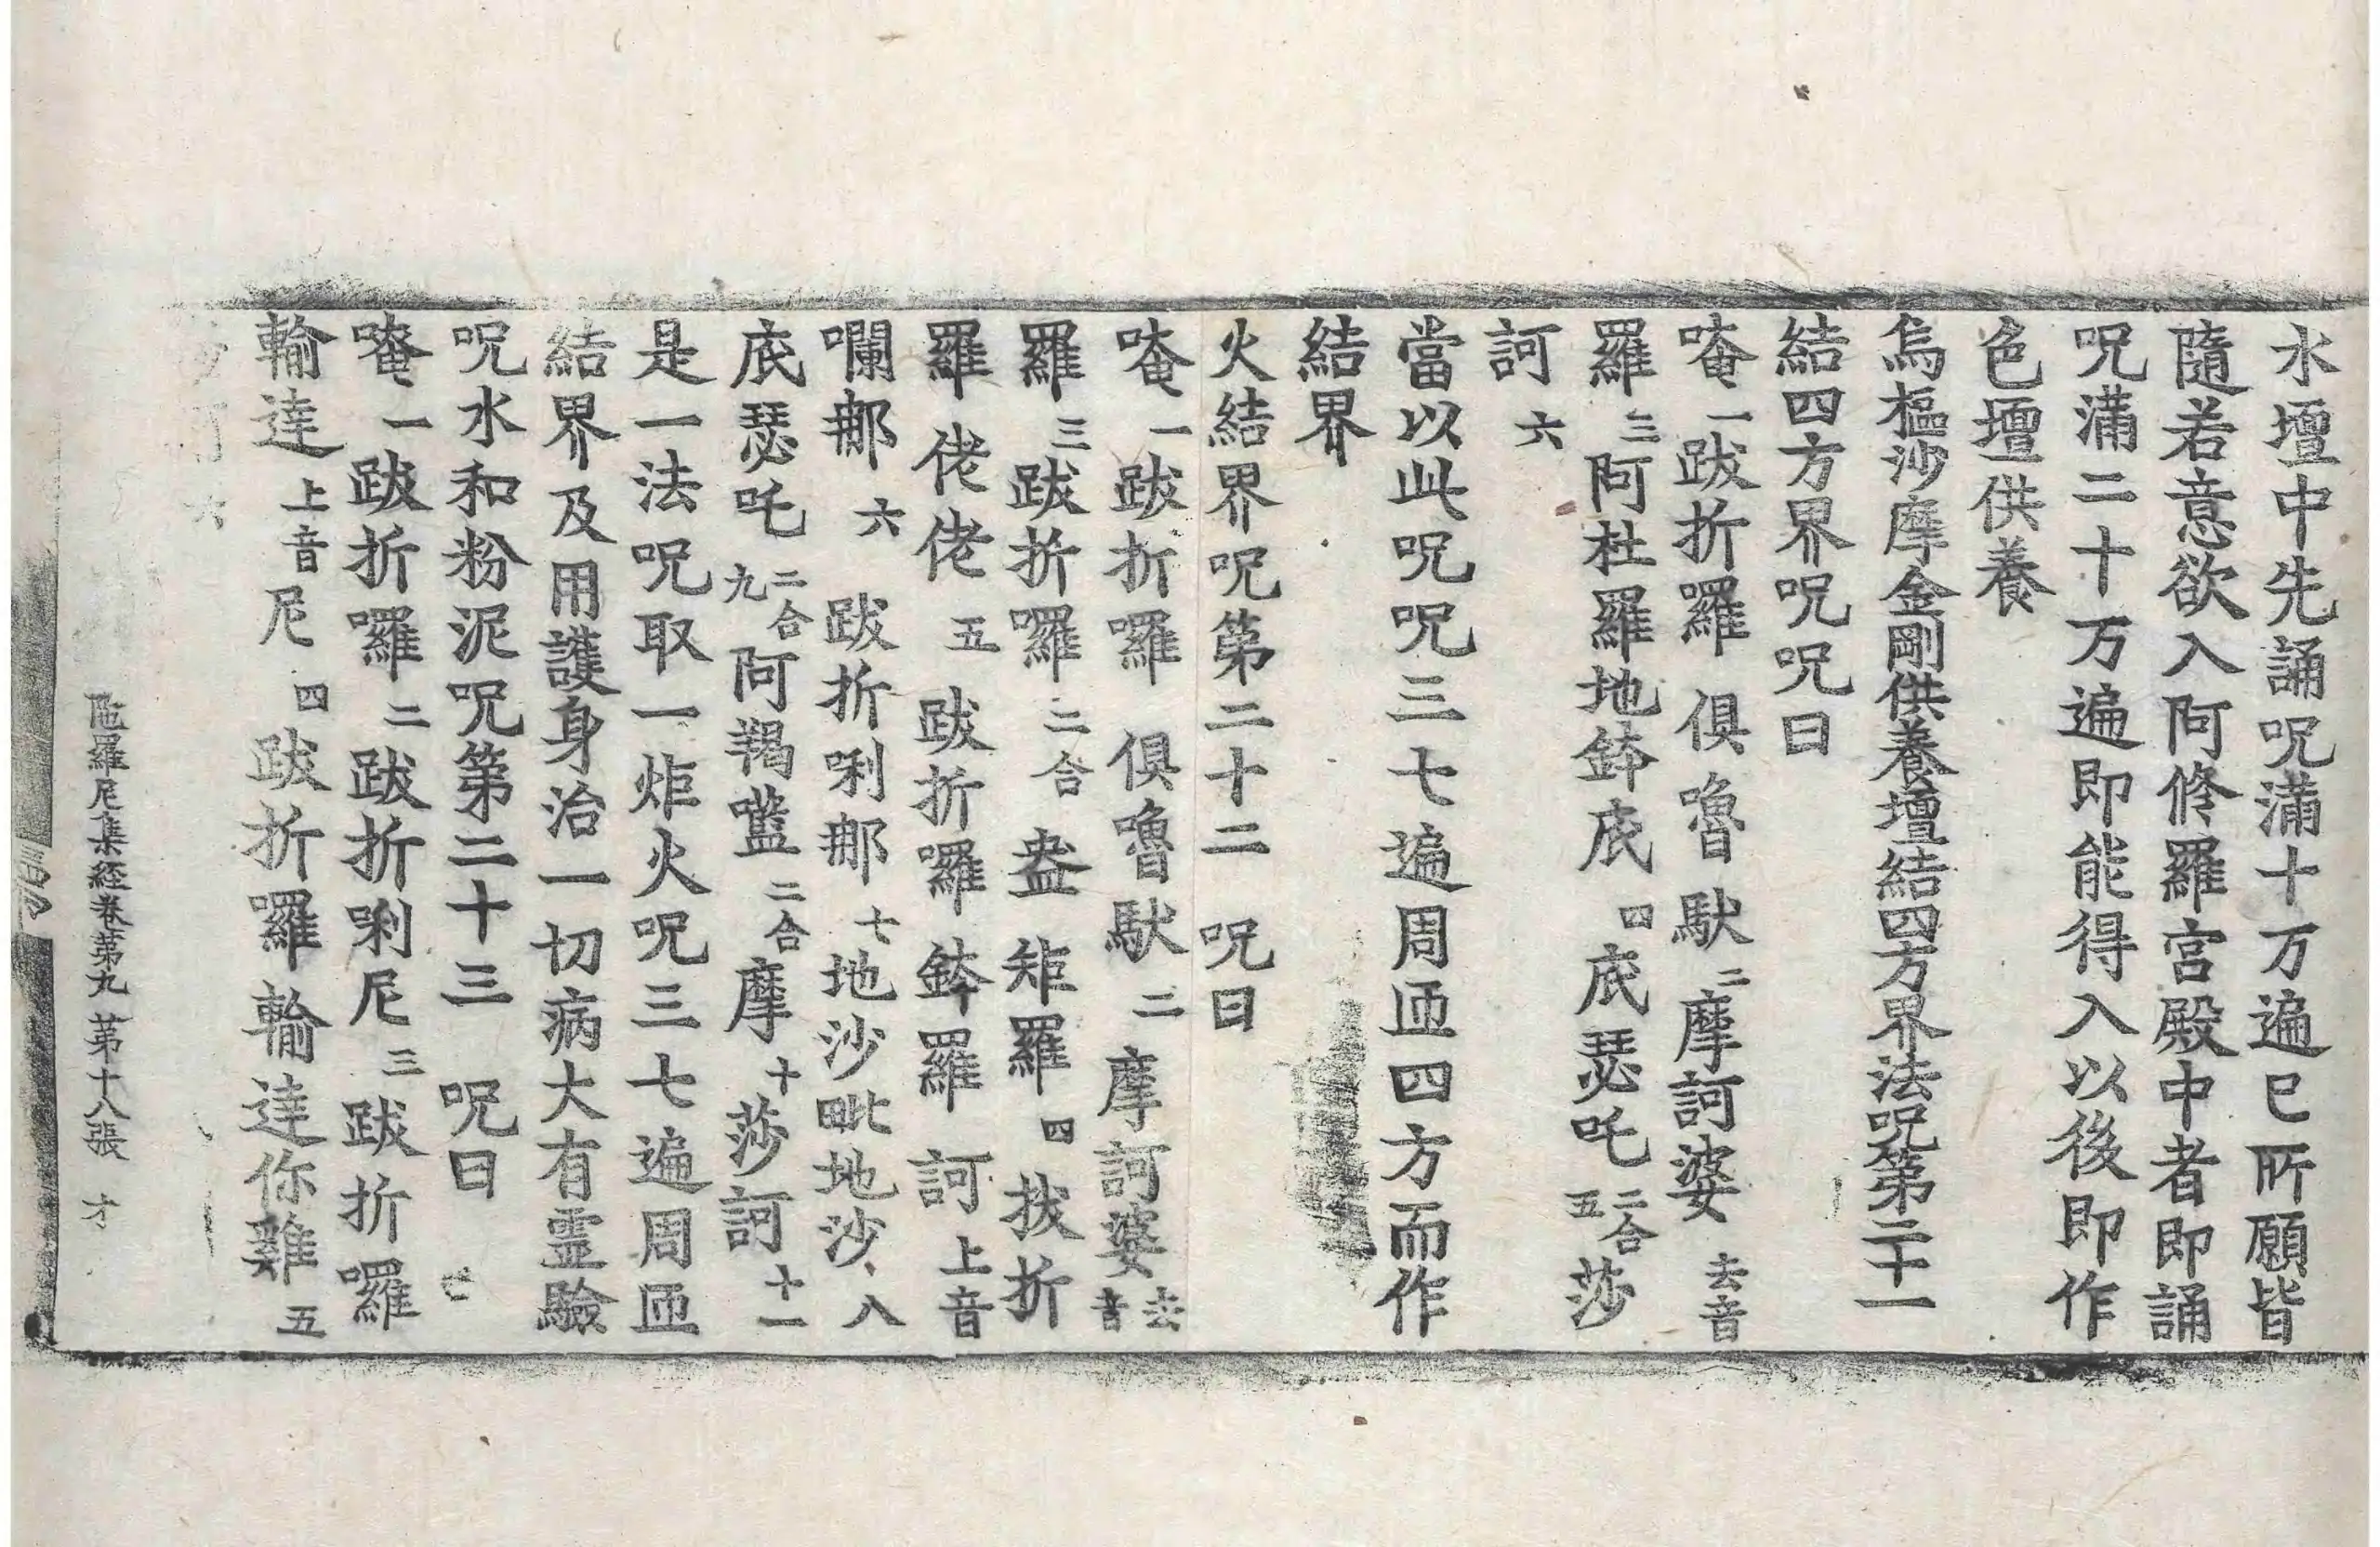 水壇中先誦呪滿十万遍已所願皆
隨若意欲入阿脩羅宮殿中者即誦
呪滿二十万遍即能得入以後即作
色壇供養
烏樞沙摩金剛供養壇結四方界法呪第二十一
結四方界呪呪曰
唵一跋折囉俱嚕馱二摩訶婆去音
羅三阿杜羅地鉢底四底瑟吒二合五莎
訶六
當以此呪呪三七遍周迊四方而作
結界
火結界呪第二十二 呪曰
唵一跋折囉俱嚕馱二摩訶婆去音
羅三跋折囉二合盎矩羅四拔折
羅佬佬五跋折囉鉢羅訶上音
囒那六跋折唎那七地沙毗地沙八
底瑟吒二合九阿羯𡃤二合摩十莎訶十一
是一法呪取一炬火呪三七遍周迊
結界及用護身治一切病大有靈驗
呪水和粉泥呪第二十三 呪曰
唵一跋折囉二跋折唎尼三跋折囉
輸達上音尼四跋折囉輸達你雞五
陁羅尼集經卷第九 第十八張 才